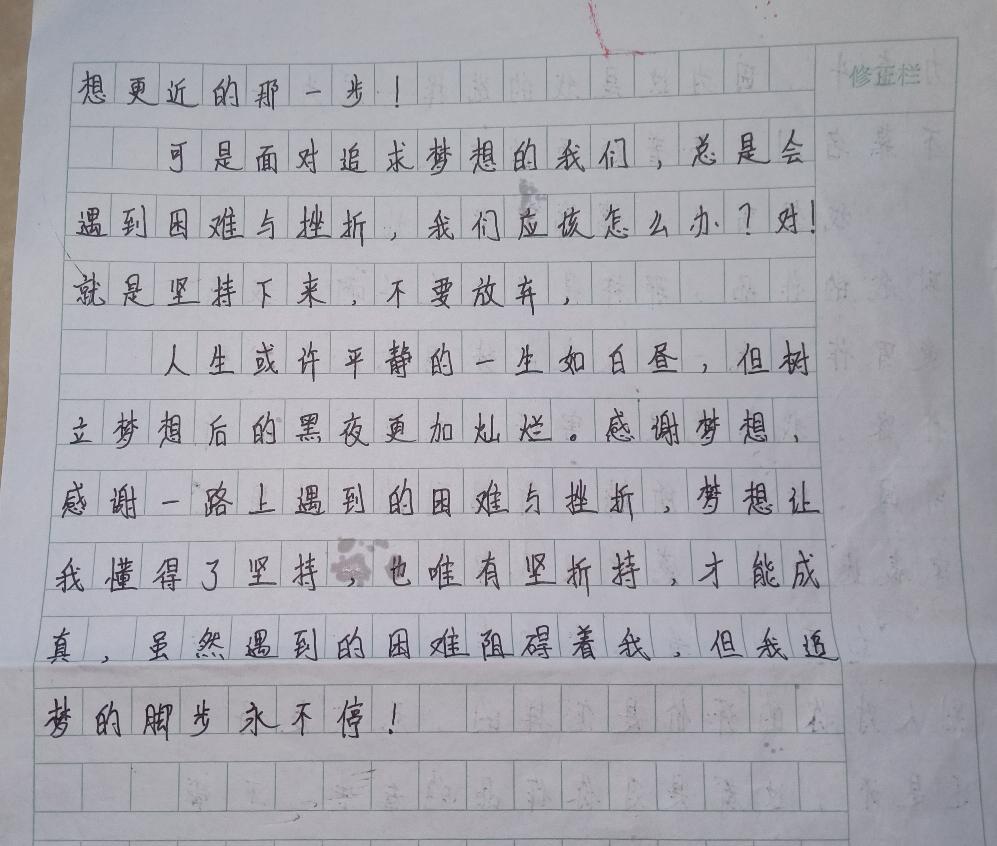 修正栏
想更近的那一步！
可是面对追求梦想的我们，总是会
遇到困难与挫折，我们应该怎么办？对！
就是坚持下来，不要放弃，
人生或许平静的一生如白昼，但树
立梦想后的黑夜更加灿烂。感谢梦想、
感谢一路上遇到的困难与挫折，梦想让
我懂得了坚持，也唯有坚折持，才能成
真，虽然遇到的困难阻碍着我，但我追
梦的脚步永不停！